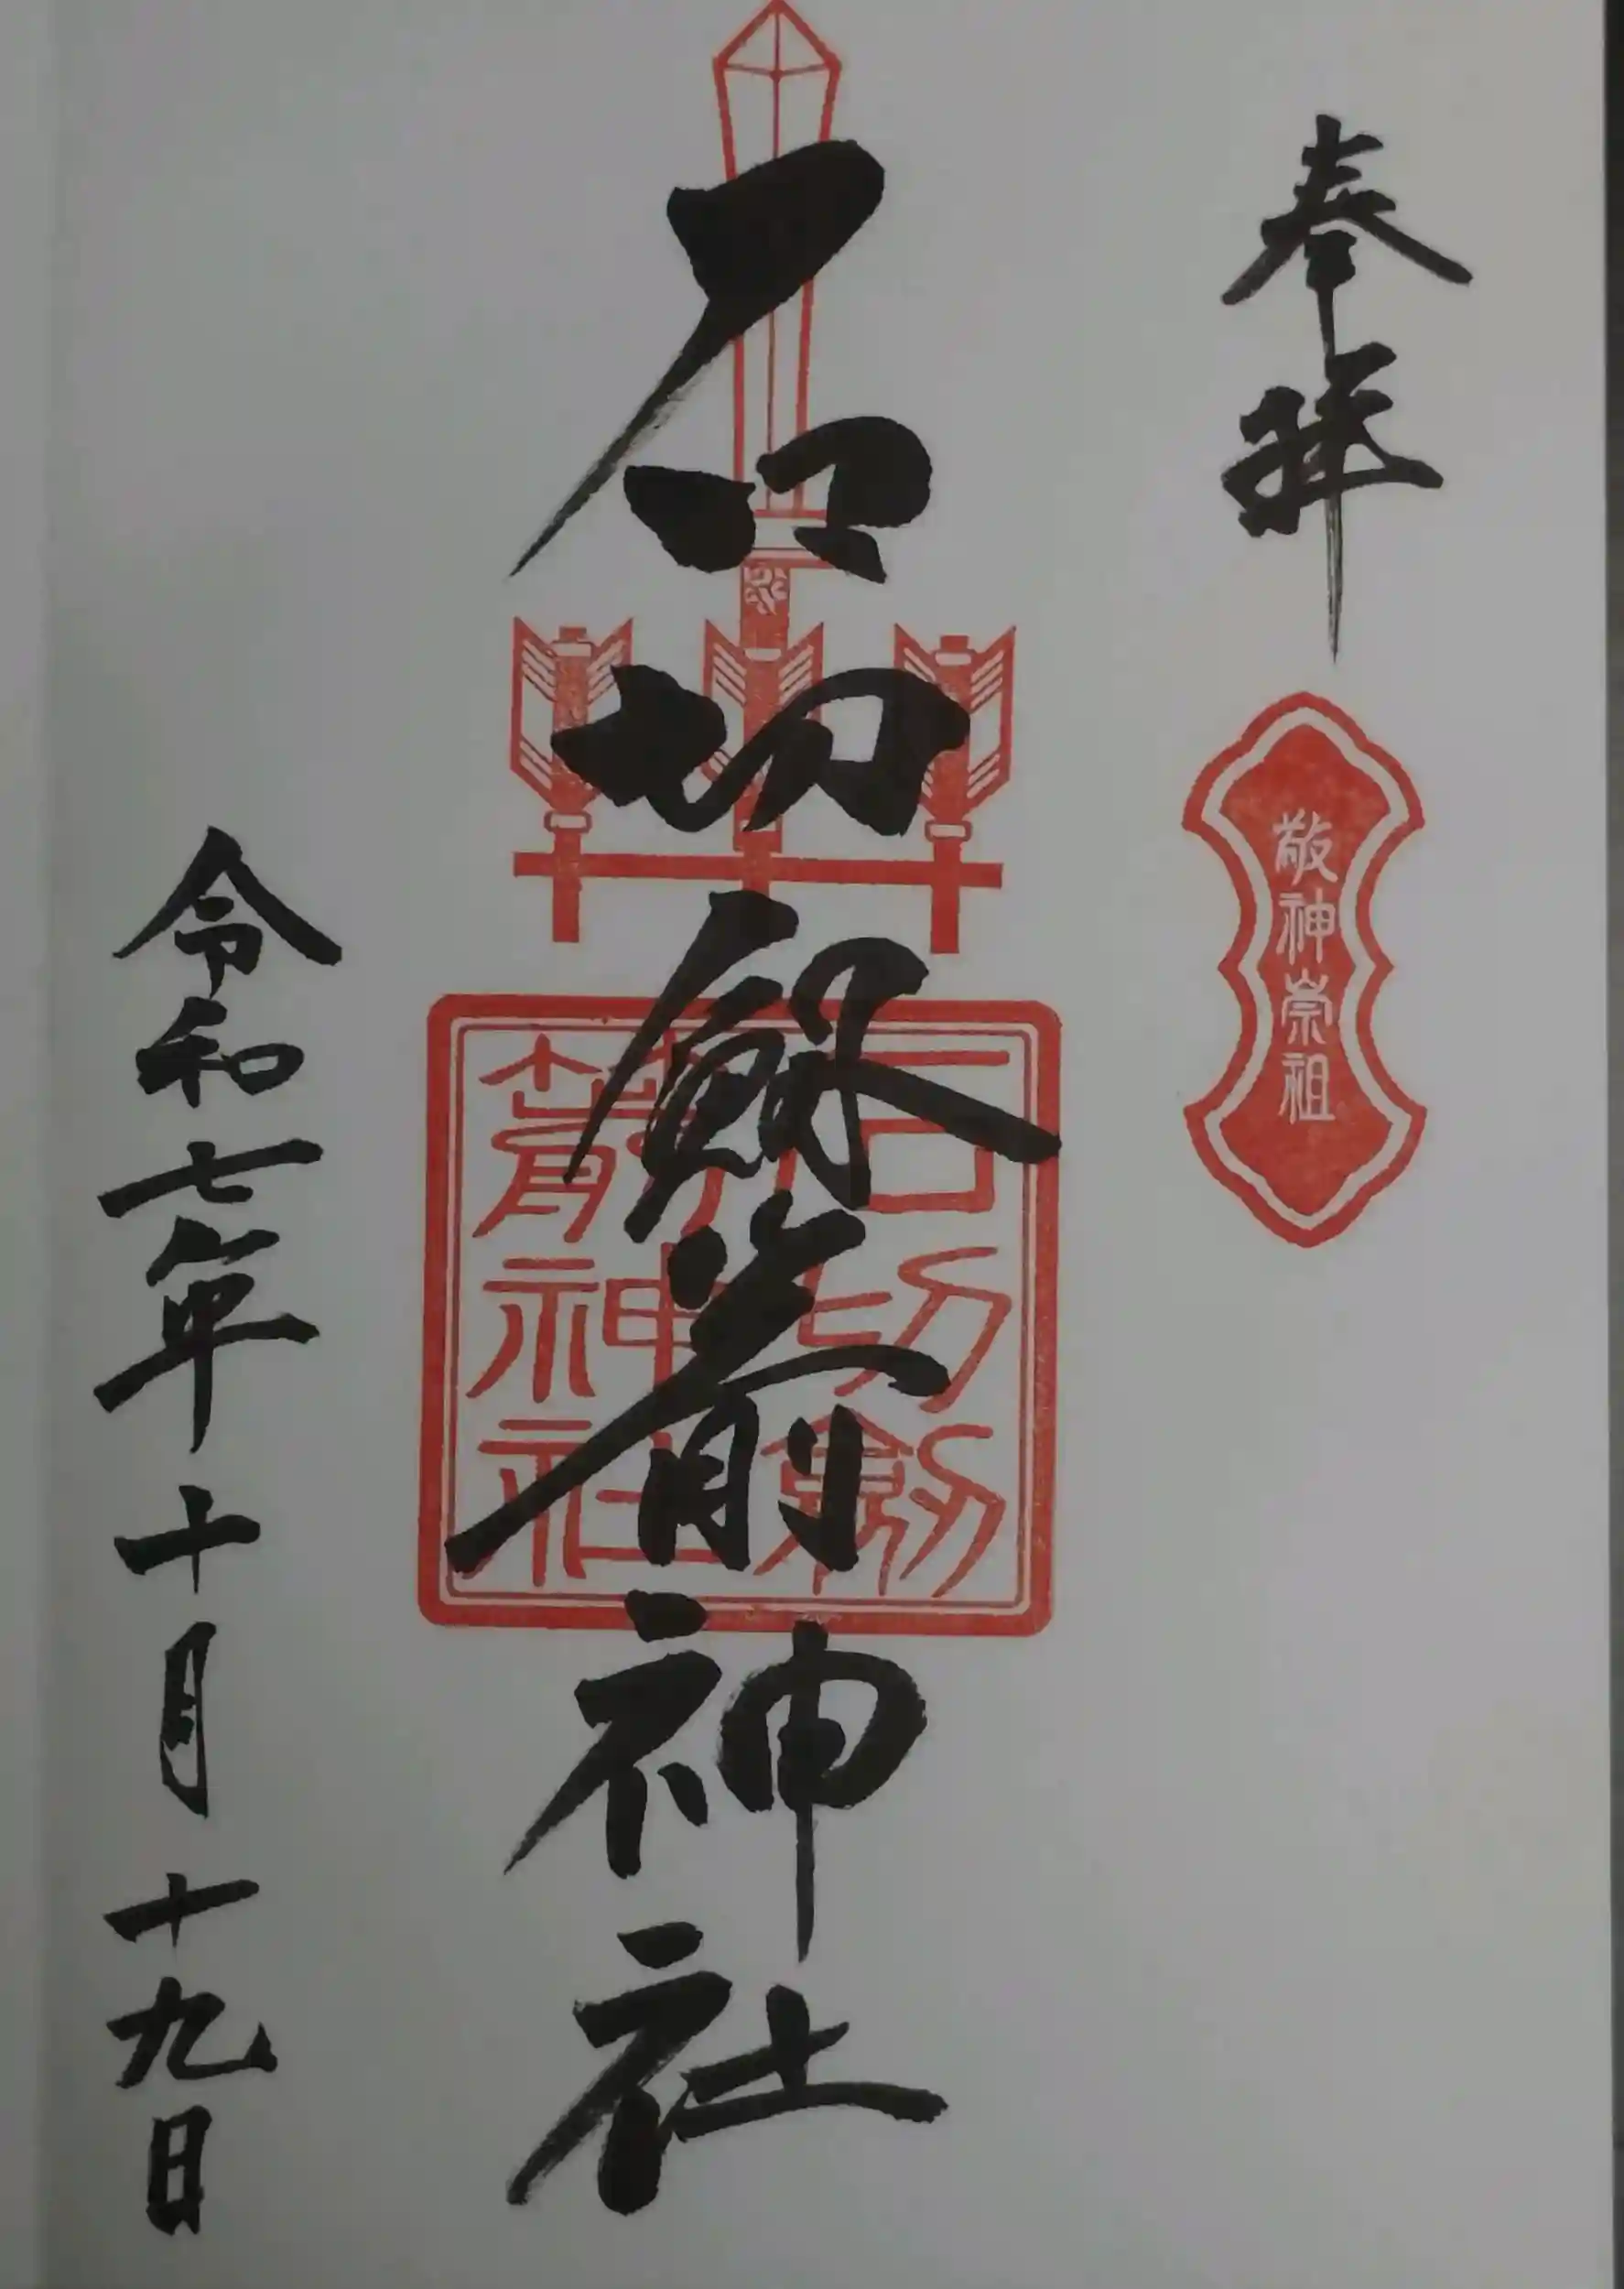 奉拝
敬神崇祖
石切劔箭神社
石切劔
箭神社
令和七年十月十九日